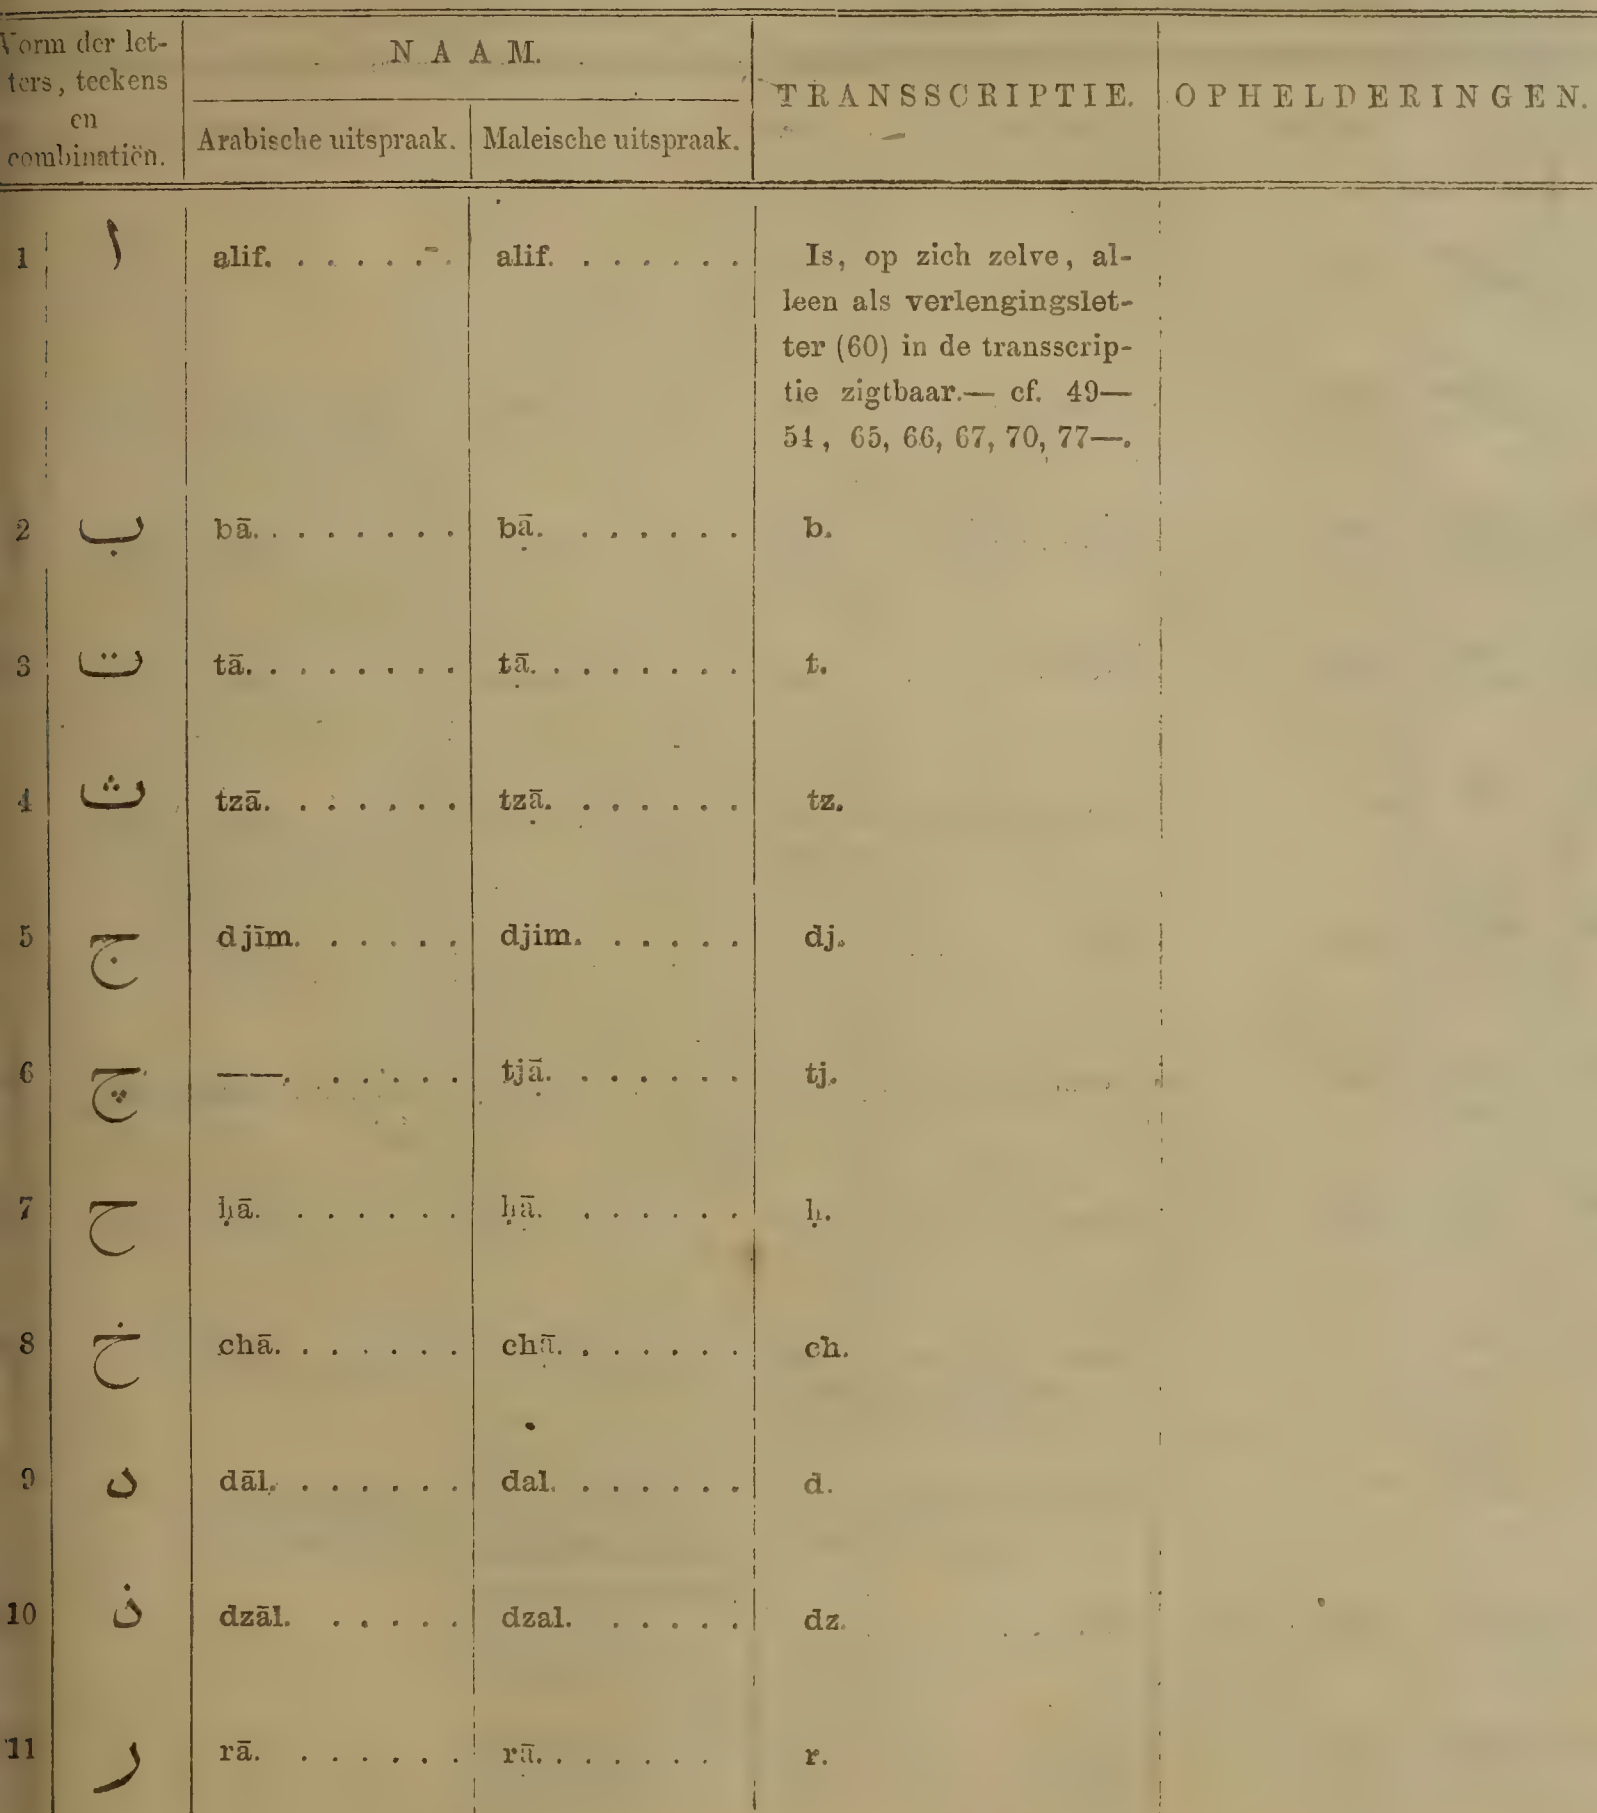 Vorm der let-
ters, teekens
en
combinatiën.
NAAM.
Arabische uitspraak. Maleische uitspraak.
TRANSSCRIPTIE.
OPHELDERINGEN.
1 ا alif. . . . . . . alif. . . . . . . Is, op zich zelve, al-
leen als verlengingslet-
ter (60) in de transscrip-
tie zigtbaar.— cf. 49—
54, 65, 66, 67, 70, 77—.
2 ب bā. . . . . . . . bạ̄. . . . . . . b.
3 ت tā. . . . . . . . tạ̄. . . . . . . . t.
4 ث tzā. . . . . . . tzạ̄. . . . . . . tz.
5 ج djīm. . . . . . djim. . . . . . dj.
6 چ ——. . . . . . tjạ̄. . . . . . . tj.
7 ح ḥā. . . . . . . ḥạ̄. . . . . . . ḥ.
8 خ chā. . . . . . . chạ̄. . . . . . . ch.
9 د dāl. . . . . . . dal. . . . . . . d.
10 ذ dzāl. . . . . . dzal. . . . . . dz.
11 ر rā. . . . . . . rạ̄. . . . . . . r.